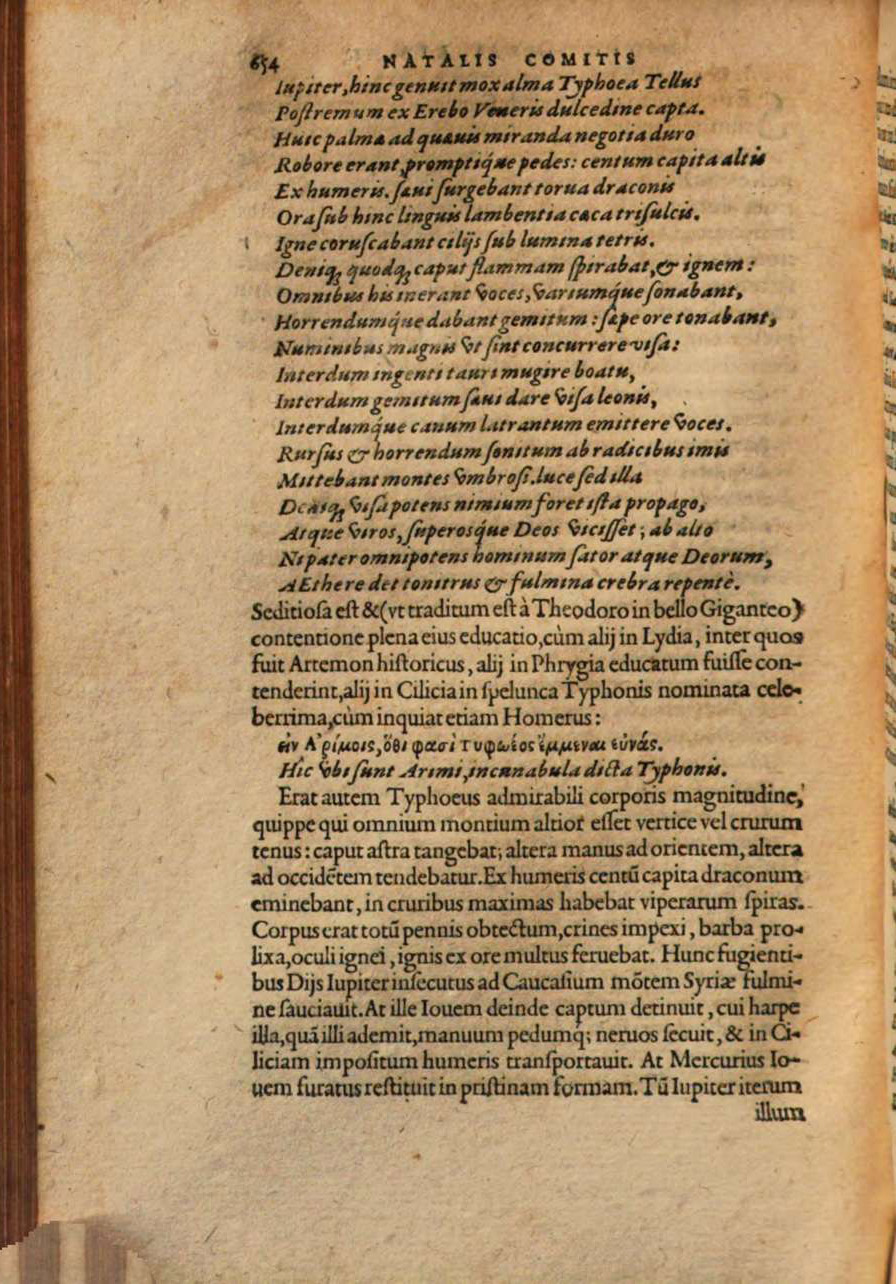 654 NATALIS COMITIS
Iupiter, hinc genuit mox alma Typhoea Tellus
Poſtremum ex Erebo Veneris dulcedine capta.
Huic palmæ ad quæuis miranda negotia duro
Robore erant, promptíque pedes: centum capita altis
Ex humeris. ſæui ſurgebant torua draconis
Ora ſub hinc linguis lambentia cæca triſulcis.
Igne coruſcabant cilijs ſub lumina tetris.
Deniq; quodq; caput flammam ſpirabat, & ignem:
Omnibus his inerant voces, variúmque ſonabant,
Horrendúmque dabant gemitum: ſæpe ore tonabant,
Numinibus magnis vt ſint concurrere viſa:
Interdum ingenti tauri mugire boatu,
Interdum gemitum ſæui dare viſa leonis,
Interdúmque canum latrantum emittere voces.
Rurſus & horrendum ſonitum ab radicibus imis
Mittebant montes vmbroſi. luce ſed illa
Deniq; viſa potens nimium foret iſta propago,
Atque viros, ſuperósque Deos viciſſet; ab alto
Ni pater omnipotens hominum ſator atque Deorum,
AEthere det tonitrus & fulmina crebra repentè.
Seditioſa eſt &(vt traditum eſt à Theodoro in bello Giganteo)
contentione plena eius educatio, cùm alij in Lydia, inter quos
fuit Artemon hiſtoricus, alij in Phrygia educatum fuiſſe con-
tenderint, alij in Cilicia in ſpelunca Typhonis nominata cele-
berrima, cùm inquiat etiam Homerus:
εἰν Α᾽ρίμοις, ὅθι φασὶ τυφωέος ἔμμεναι εὐνάς.
Hîc vbi ſunt Arimi, incunabula dicta Typhonis.
Erat autem Typhoeus admirabili corporis magnitudine,
quippe qui omnium montium altior eſſet vertice vel crurum
tenus: caput aſtra tangebat; altera manus ad orientem, altera
ad occidētem tendebatur. Ex humeris centū capita draconum
eminebant, in cruribus maximas habebat viperarum ſpiras.
Corpus erat totū pennis obtectum, crines impexi, barba pro-
lixa, oculi ignei, ignis ex ore multus feruebat. Hunc fugienti-
bus Dijs Iupiter inſecutus ad Caucaſium mōtem Syriæ fulmi-
ne ſauciauit. At ille Iouem deinde captum detinuit, cui harpe
illa, quā illi ademit, manuum pedumq; neruos ſecuit, & in Ci-
liciam impoſitum humeris tranſportauit. At Mercurius Io-
uem furatus reſtituit in priſtinam formam. Tū Iupiter iterum
illum